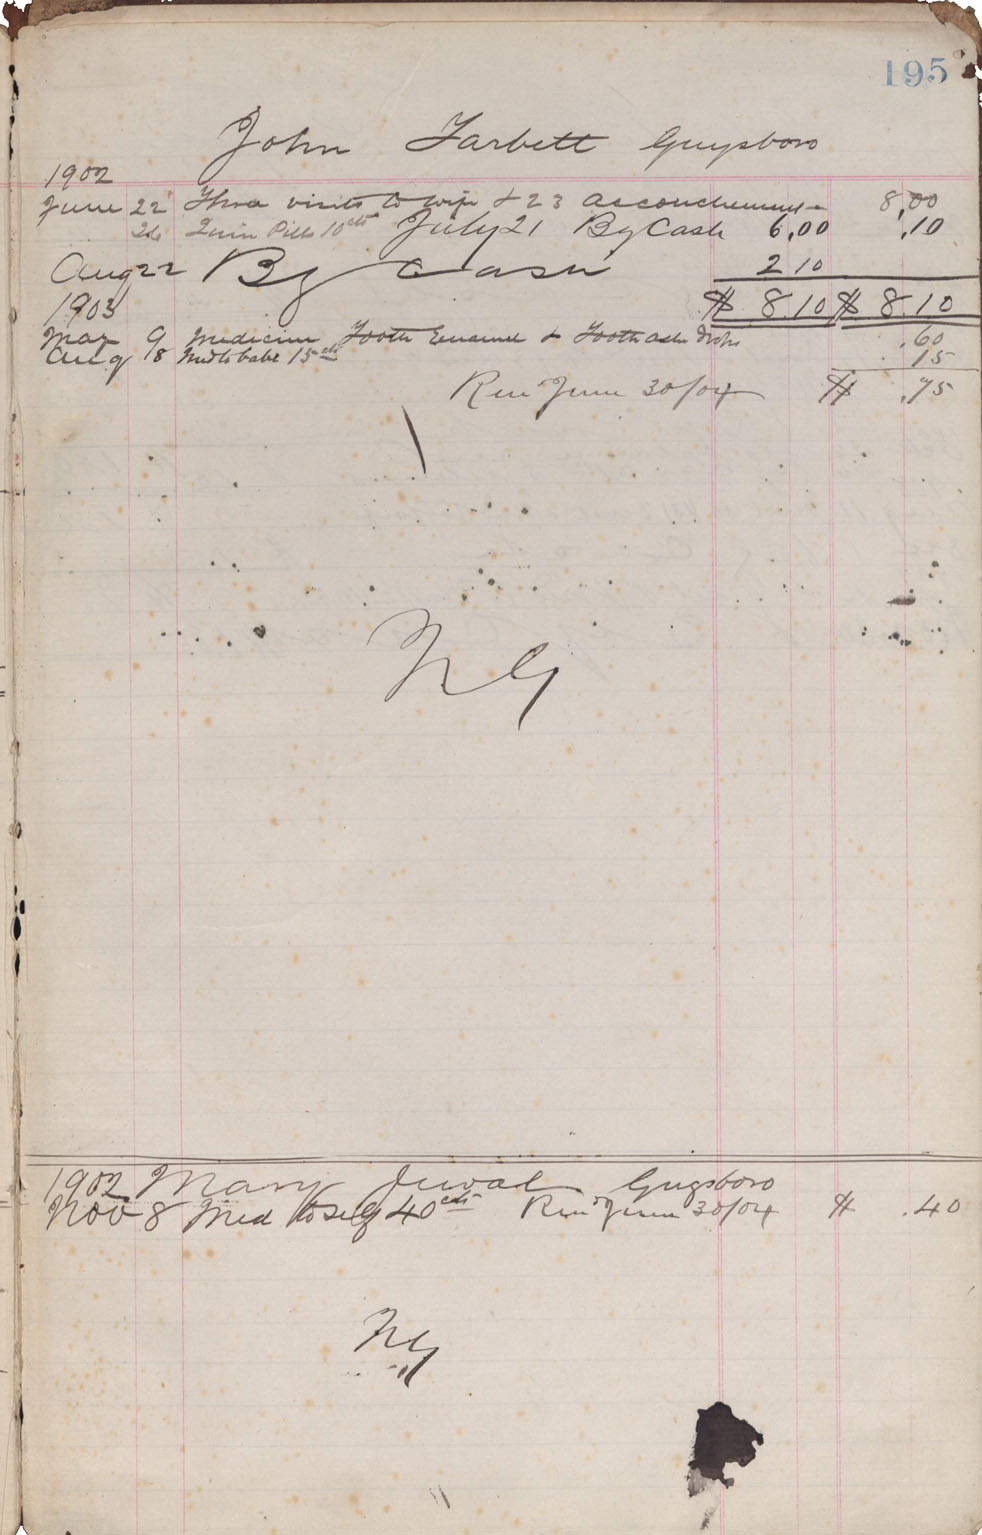 195
John Tarbett Guysboro
1902
June 22 Three visits to wife & 23 accouchement 8.00
26 Quin Pills 10cts July 21 By Cash 6.00 .10
Aug 22 By Cash 2 10
1903 $ 8.10 $ 8.10
May 9 Medicine Tooth Enamel & Toothache drops .60
Aug 8 Med to babe 15cts .15
Ren June 30/04 $ .75
NG
1902 Mary Guysboro
Nov 8 Med to self 40cts Ren June 30/04 $ .40
NG